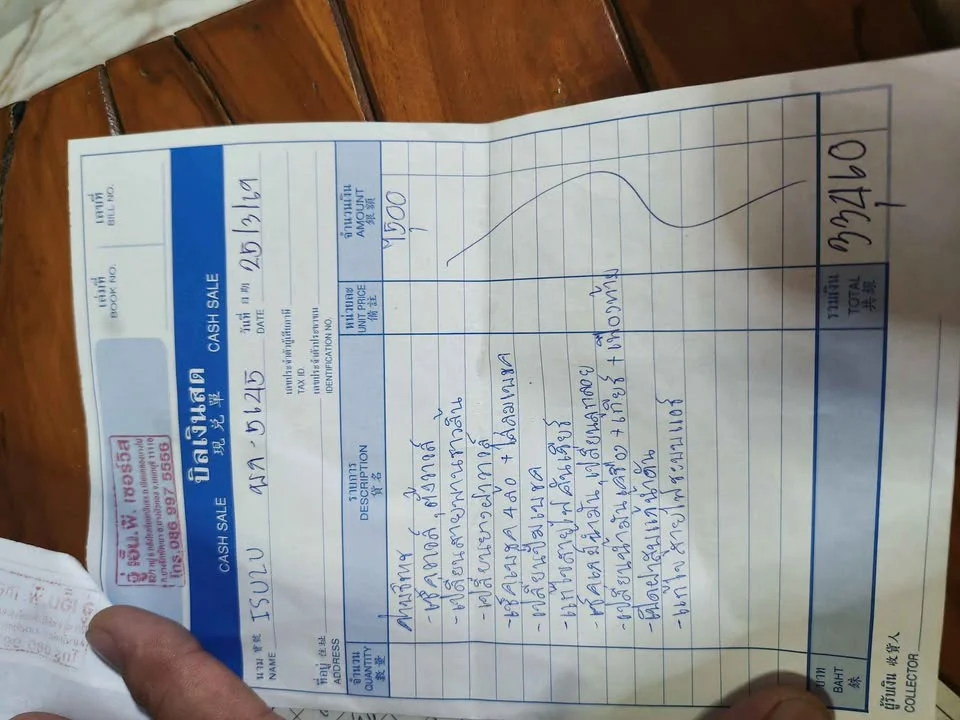 เล่มที่
BOOK NO.
เลขที่
BILL NO.
อู่ เอ็น.พี. เซอร์วิส
โทร.086 997 5556
บิลเงินสด
CASH SALE 現兌單 CASH SALE
นาม 寶號 NAME ISUZU ฆภ - 5145 วันที่ 日期 DATE 25/3/69
ที่อยู่ 住址 ADDRESS
เลขประจำตัวผู้เสียภาษี
TAX ID.
เลขประจำตัวประชาชน
IDENTIFICATION NO.
จำนวน QUANTITY 數量
รายการ DESCRIPTION 貨名
หน่วยละ UNIT PRICE 備註
จำนวนเงิน AMOUNT 銀額
7500
-เช็ควาล์ว,ตั้งวาล์ว
-เปลี่ยนสายพานราวลิ้น
-เปลี่ยนยางฝาวาล์ว
-เช็คเบรค 4 ล้อ +
-เปลี่ยนปั๊มเบรค
-แก้ไขสายไฟคันเกียร์
-เช็ค น้ำมัน,เปลี่ยนลูกลอย
-เปลี่ยนน้ำมันเครื่อง+เกียร์+เฟืองท้าย
-แก้ไขสายไฟ
บาท
BAHT
銖
รวมเงิน
TOTAL
共銀
33460
ผู้รับเงิน 收貨人
COLLECTOR